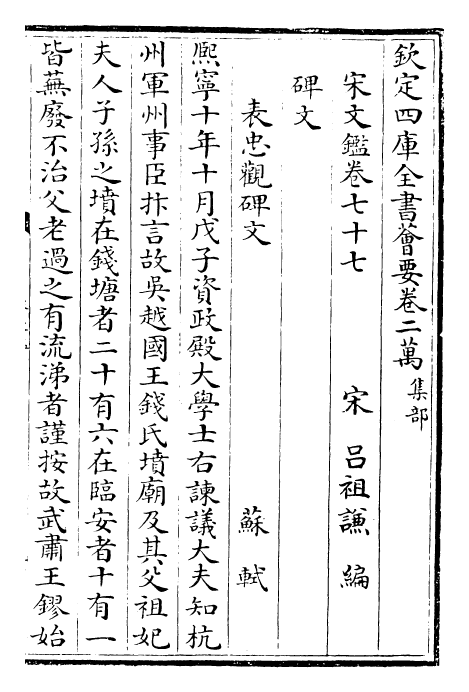 欽定四庫全書薈要卷二萬 集部
宋文鑑卷七十七 宋 呂祖謙 編
碑文
表忠觀碑文 蘇軾
熈寧十年十月戊子資政殿大學士右諫議大夫知杭
州軍州事臣抃言故吳越國王錢氏墳廟及其父祖妃
夫人子孫之墳在錢塘者二十有六在臨安者十有一
皆蕪廢不治父老過之有流涕者謹按故武肅王鏐始